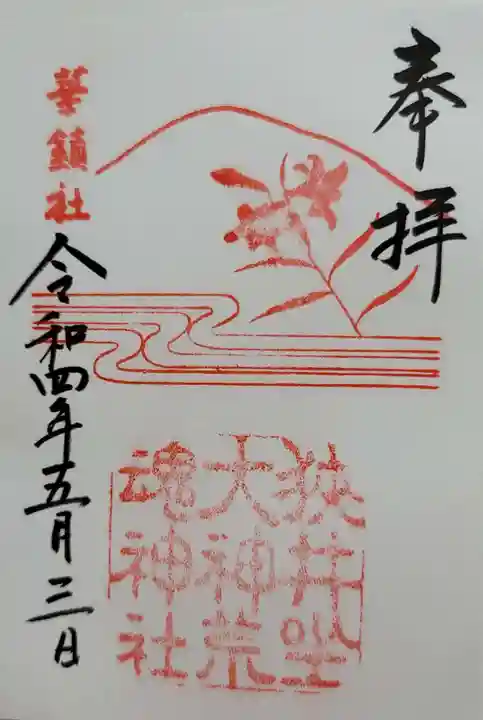 奉拝
華鎮社
令和四年五月三日
狭井坐
大神荒
魂神社